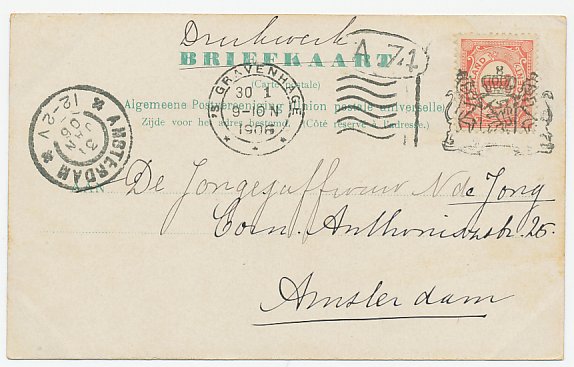 Drukwerk
A. 71
BRIEFKAART
(Carte postale)
Algemeene Postvereeniging Union postale universelle
Zijde voor het adres bestemd. (Côté réservé à l'adresse.)
'S GRAVENHAGE
30 1
9-10 N
1905
AMSTERDAM
3
JAN
06
12-2 V
AAN De Jongejuffrouw N de Jong
Corn. Anthoniszstr. 25.
Amsterdam